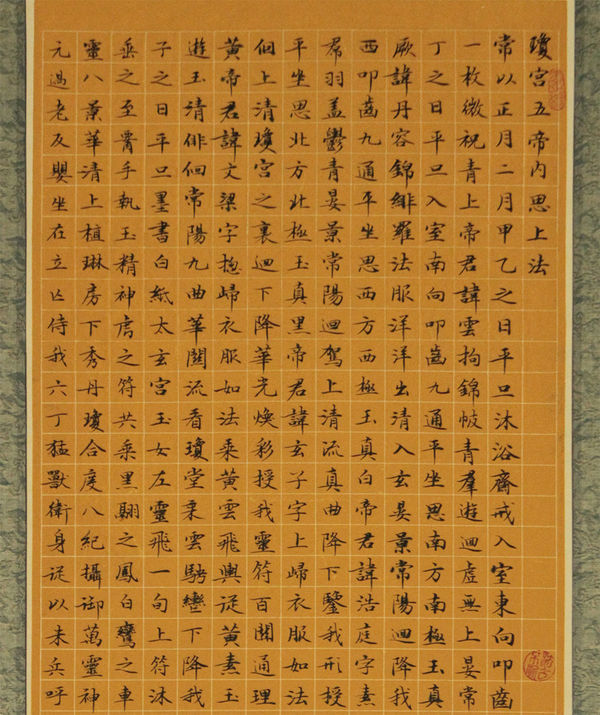 瓊宮五帝內思上法
常以正月二月甲乙之日平旦沐浴齋戒入室東向叩齒
一枚微祝青上帝君諱雲拘錦帔青羣遊迴虛無上晏常
丁之日平旦入室南向叩齒九通平坐思南方南極玉真
厥諱丹容錦緋羅法服洋洋出清入玄晏景常陽迴降我
西叩齒九通平坐思西方西極玉真白帝君諱浩庭字素
羣羽蓋鬱青晏景常陽迴駕上清流真曲降下鑒我形授
平坐思北方北極玉真黑帝君諱玄子字上歸衣服如法
佪上清瓊宮之裏迴下降華光煥彩授我靈符百關通理
黃帝君諱文梁字揔歸衣服如法乘黃雲飛輿從黃素玉
遊玉清俳佪常陽九曲華關流看瓊堂乘雲騁轡下降我
子之日平旦墨書白紙太玄宮玉女左靈飛一旬上符沐
垂之至臋手執玉精神虎之符共乘黑翮之鳳白鸞之車
靈八景華清上植琳房下秀丹瓊合度八紀攝御萬靈神
元過老反嬰坐在立亡侍我六丁猛獸衛身從以朱兵呼